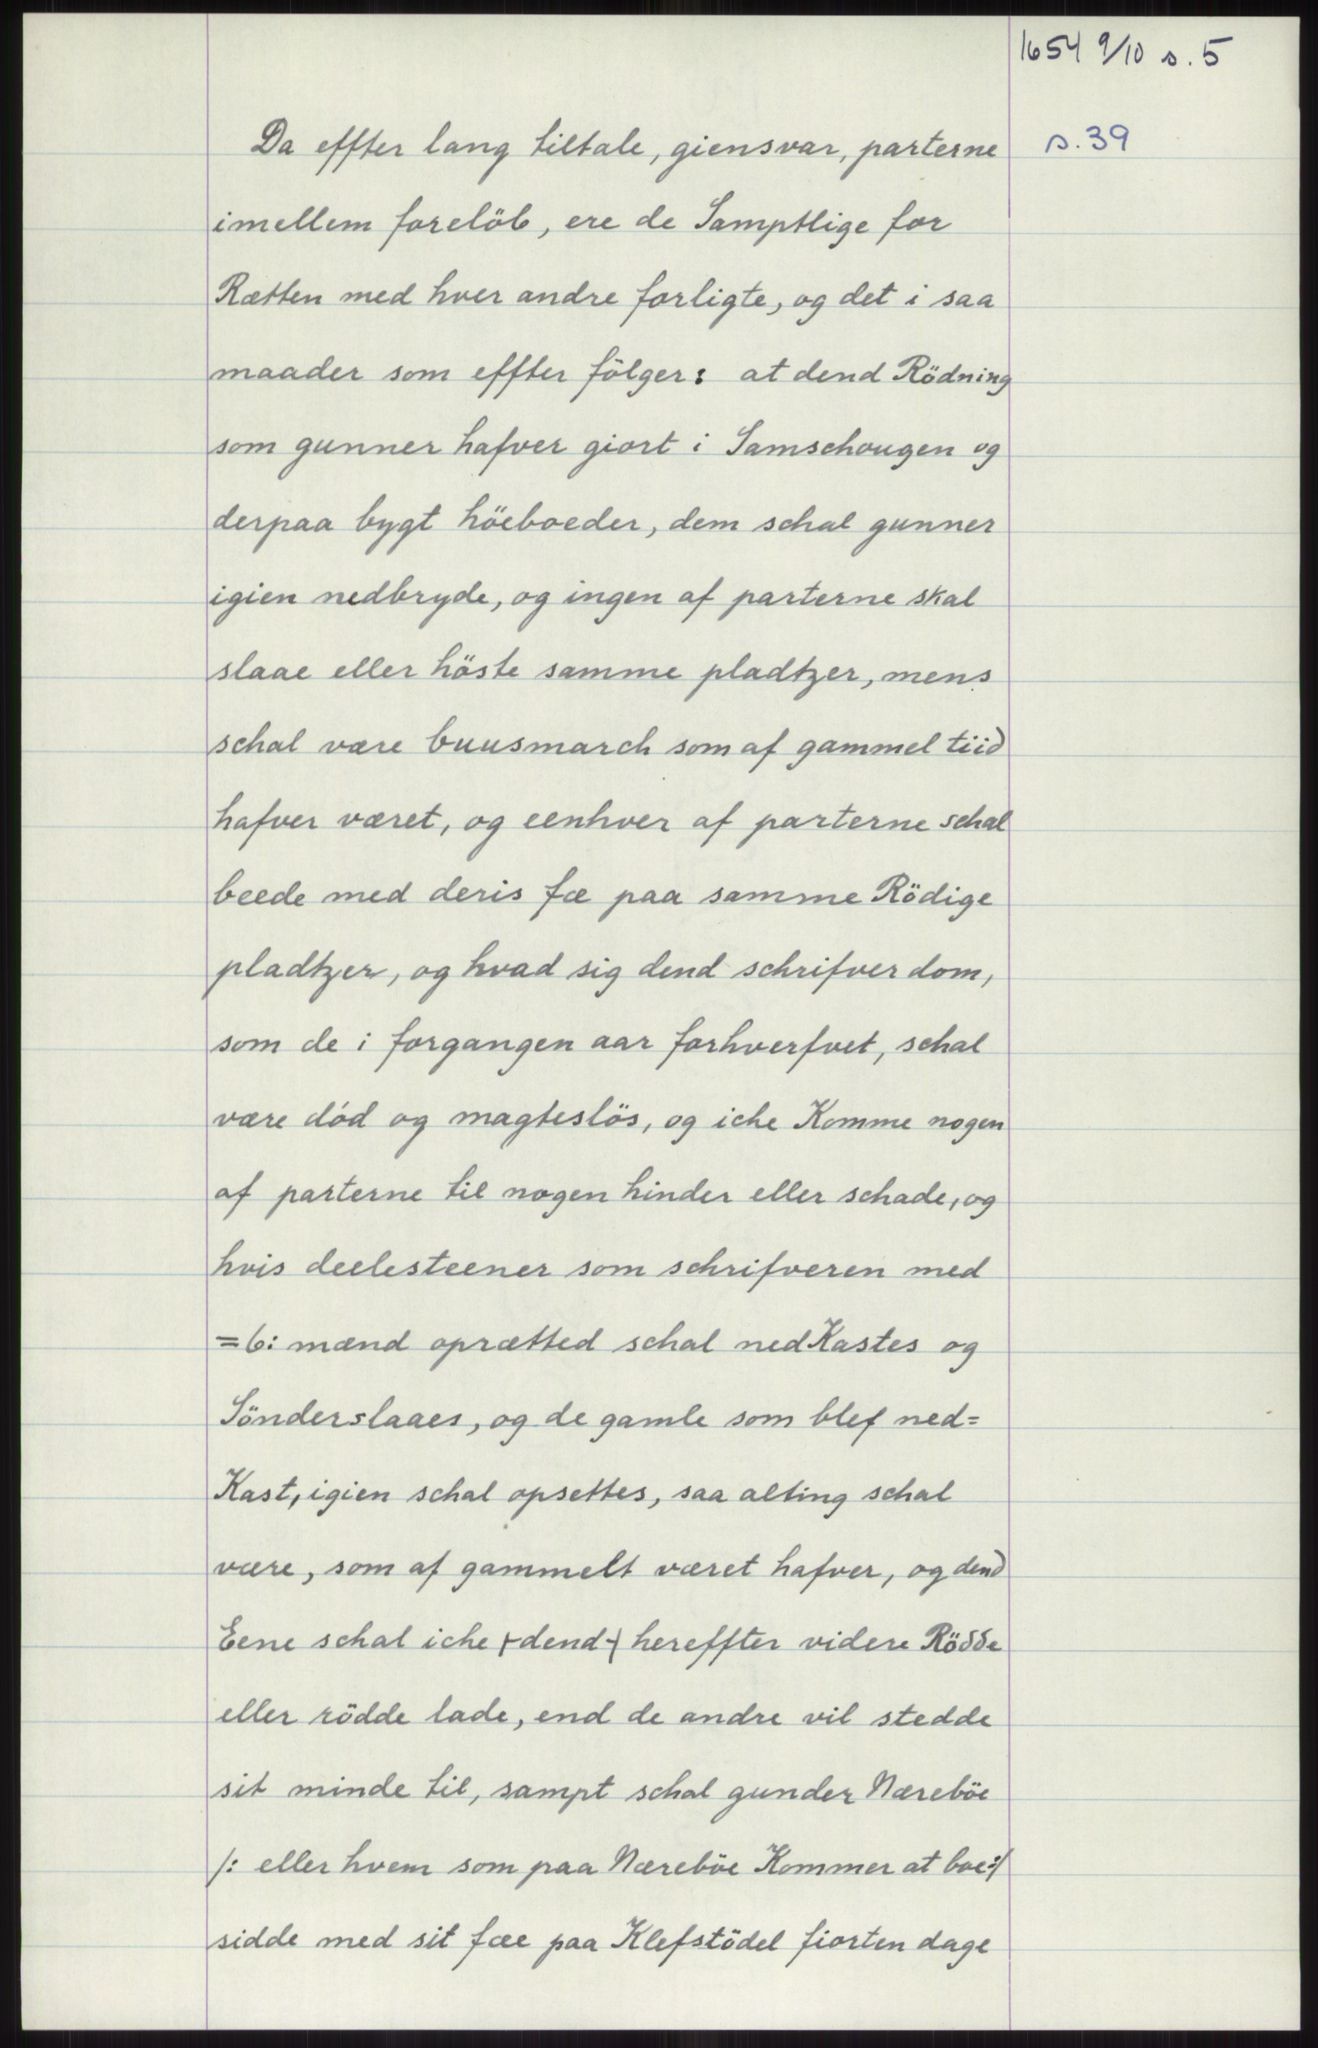 1654 9/10 s. 5
s. 39
Da effter lang tiltale, giensvar, parterne
imellem foreløb, ere de Samptlige for
Rætten med hver andre forligte, og det i saa
maader som effter fölger: at dend Rödning
som gunner hafver giort i Samschougen og
derpaa bygt höeboeder, dem schal gunner
igien nedbryde, og ingen af parterne skal
slaae eller höste samme pladtzer, mens
schal være buusmarch som af gammel tiid
hafver været, og eenhver af parterne schal
beede med deris fæ paa samme Rödige
pladtzer, og hvad sig dend schrifver dom,
som de i forgangen aar forhverfvet, schal
være död og magteslös, og iche Komme nogen
af parterne til nogen hinder eller schade, og
hvis deelesteener som schrifveren med
=6: mænd oprætted schal nedKastes og
Sönderslaaes, og de gamle som blef ned=
Kast, igien schal opsettes, saa alting schal
være, som af gammelt været hafver, og dend
Eene schal iche ⊢dend⊣ hereffter videre Rödde
eller rödde lade, end de andre vil stedde
sit minde til, sampt schal gunder Næreböe
/: eller hvem som paa Nærebøe Kommer at boe:/
sidde med sit fæe paa Klefstödel fiorten dage